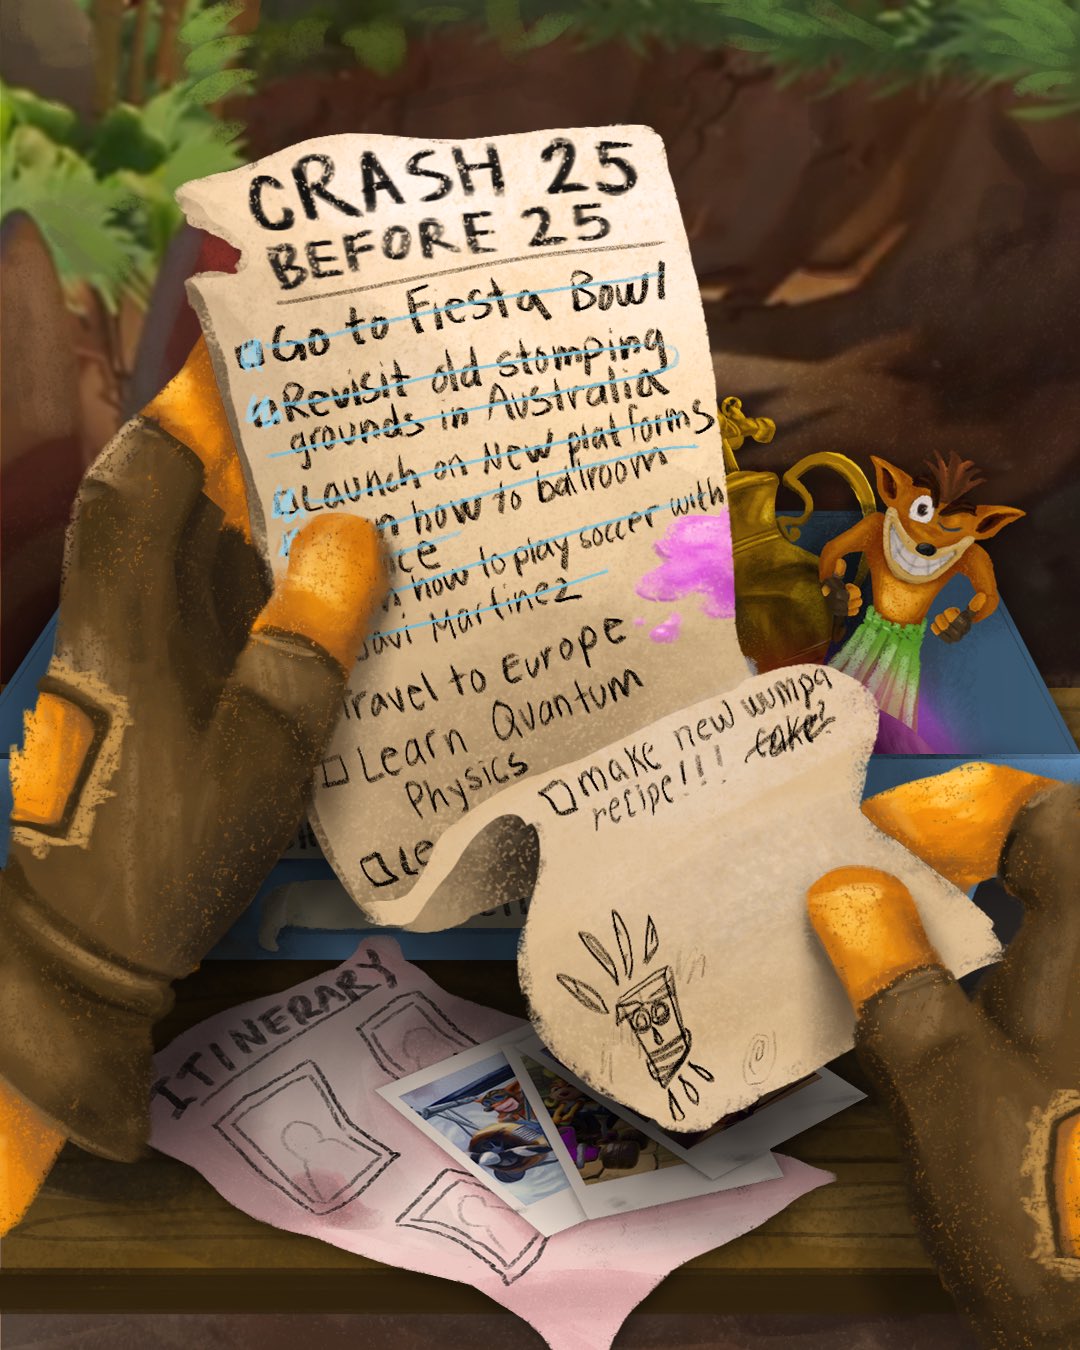 CRASH 25
BEFORE 25
Go to Fiesta Bowl
Revisit old stomping
grounds in Australia
Launch on New platforms
how to ballroom
how to play soccer with
Javi Martinez
Travel to Europe
Learn Quantum
Physics
Le
make new wumpa
recipe!!! cake?
ITINERARY